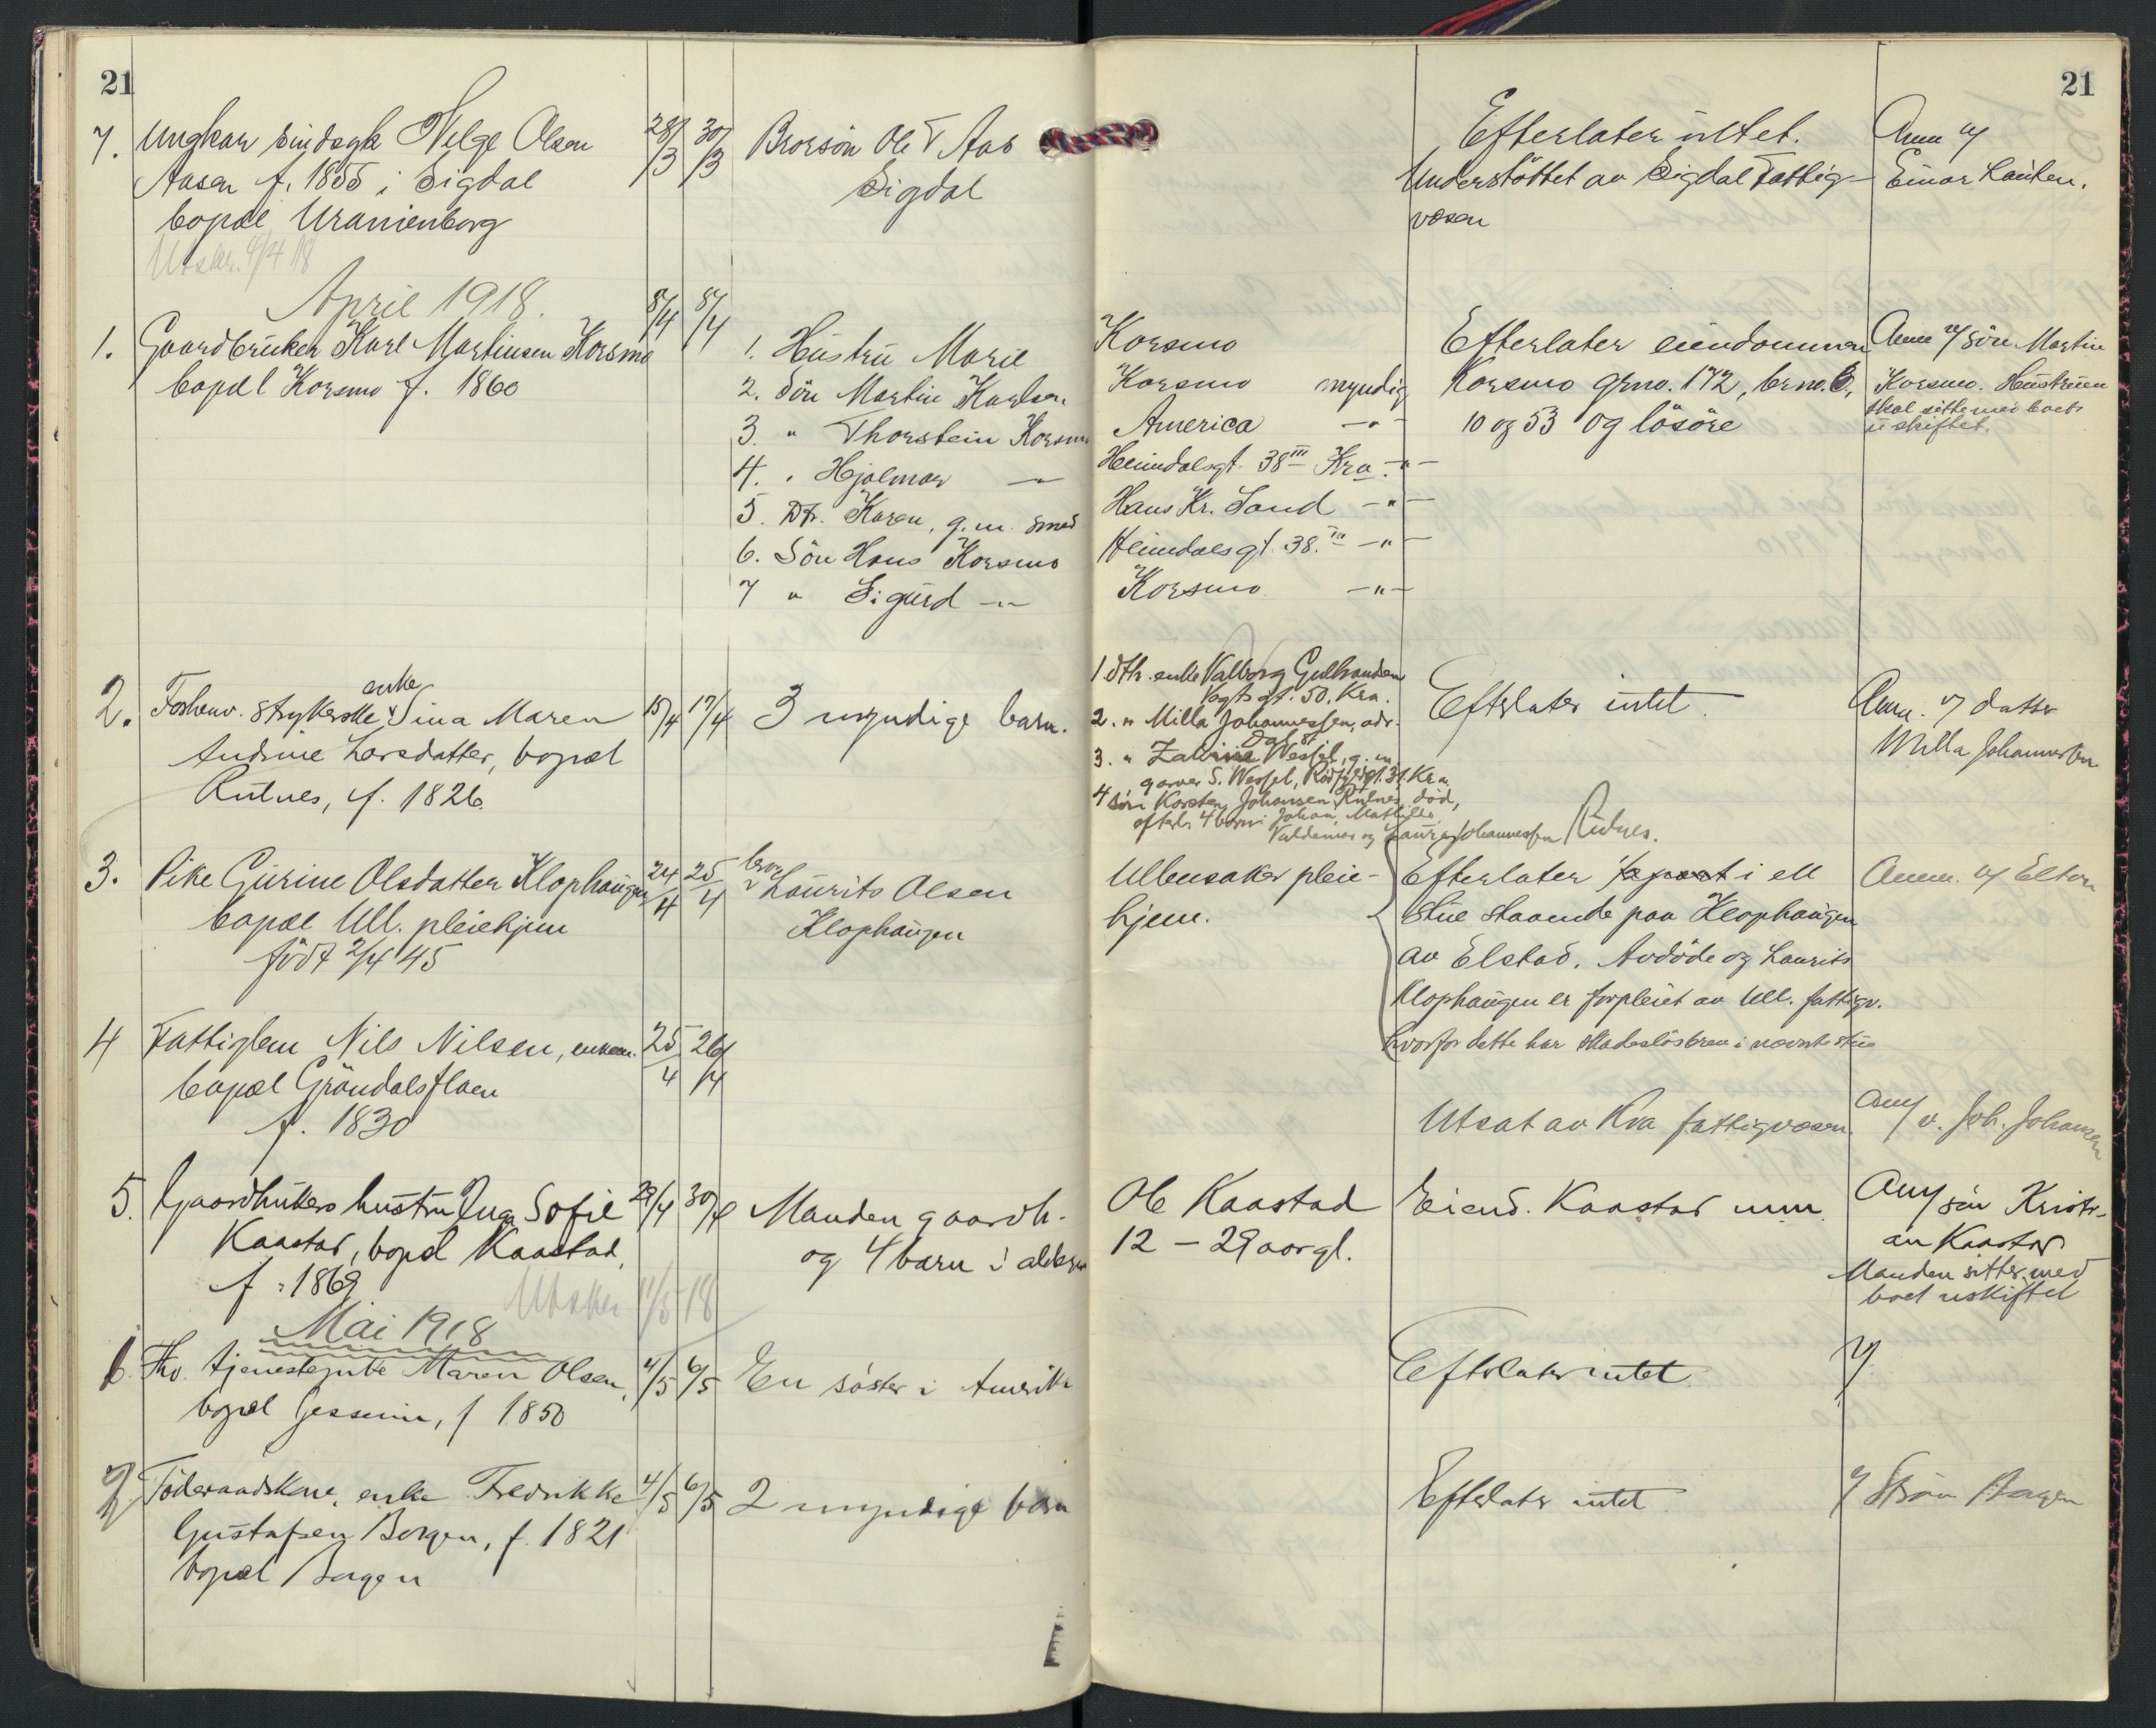 21
21
7. Ungkar sindsyk Helge Olsen 28/3 30/3 Brorsön Ole T Aas Efterlater intet. Anm af
Aasen f. 1855 i Sigdal Sigdal Understöttet av Sigdal Fattig- Einar
bopæl Uranienborg væsen
Utskr. 4/4 18
April 1918.
1. Gaardbruker Karl Martinsen Korsmo 8/4 8/4 1. Hustru Marie Korsmo Efterlater eiendommen Anm af sön Martin
bopæl Korsmo f. 1860 2. Sön Martin Karlsen Korsmo myndig Korsmo grno. 172, brno. 6, Korsmo. Hustruen
3. " Thorstein Korsmo America -"- 10 og 53 og lösöre skal sitte med boet
4. " Hjalmar -"- Heimdalsgt. 38 III Kra. -"- uskiftet.
5. Dtr. Karen, g.m. smed Hans Kr. Sand -"-
6. Sön Hans Korsmo Heimdalsgt. 38. III -"-
7 " Sigurd -"- Korsmo. -"-
1 dtr. enke Valborg Gulbranden
enke Vogts gt. 50. Kra.
2. Forhenv. strykerske Sina Maren 15/4 17/4 3 myndige barn. 2. " Milla Johannessen, adr. Efterlater intet. Anm. af datter
Andrine Larsdatter, bopæl Dal st. Milla Johannessen
3. " Wessel, g. m.
Rutnes, f. 1826. garver S. Wessel, 31. Kra.
4 sön Karsten Johansen Rutnes, död,
efterl. 4 barn: Johan, Mathilde,
Valdemar og Laura Johannessen Rutnes.
3. Pike Gurine Olsdatter Klophaugen 24/4 25/4 bror Laurits Olsen Ullensaker pleie- Efterlater 1/2 part i ell Anm. af
bopæl Ull. pleiehjem Klophaugen hjem. stue staaende paa Klophaugen
född 2/4 45 av Elstad. Avdöde og Laurits
Klophaugen er forpleiet av Ull. fattigv.
hvorfor dette har i nævnte stue
4 Fattiglem Nils Nilsen, enkem. 25/4 26/4
bopæl Gröndalsflaen
f. 1830 Utsat av Kra fattigvæsen. Anm v. Joh. Johansen
5. Gaardbrukers hustru Inga Sofie 29/4 30/4 Manden gaardb. Ole Kaastad Eiend. Kaastad Anm sön Kristi-
Kaastad, bopæl Kaastad, og 4 barn i alderen 12 - 29 aar gl. an Kaastad
f. 1869 Manden sitter med
Utskr 11/5 18 boet uskiftet
Mai 1918
6. Fhv. tjenestepike Maren Olsen, 4/5 6/5 En söster i Amerika Efterlater intet
bopæl Jessheim, f 1850
7 Föderaadskone, enke Fredrikke 4/5 6/5 2 myndige barn Efterlater intet Borgen
Gustafsen Borgen, f. 1821
bopæl Borgen